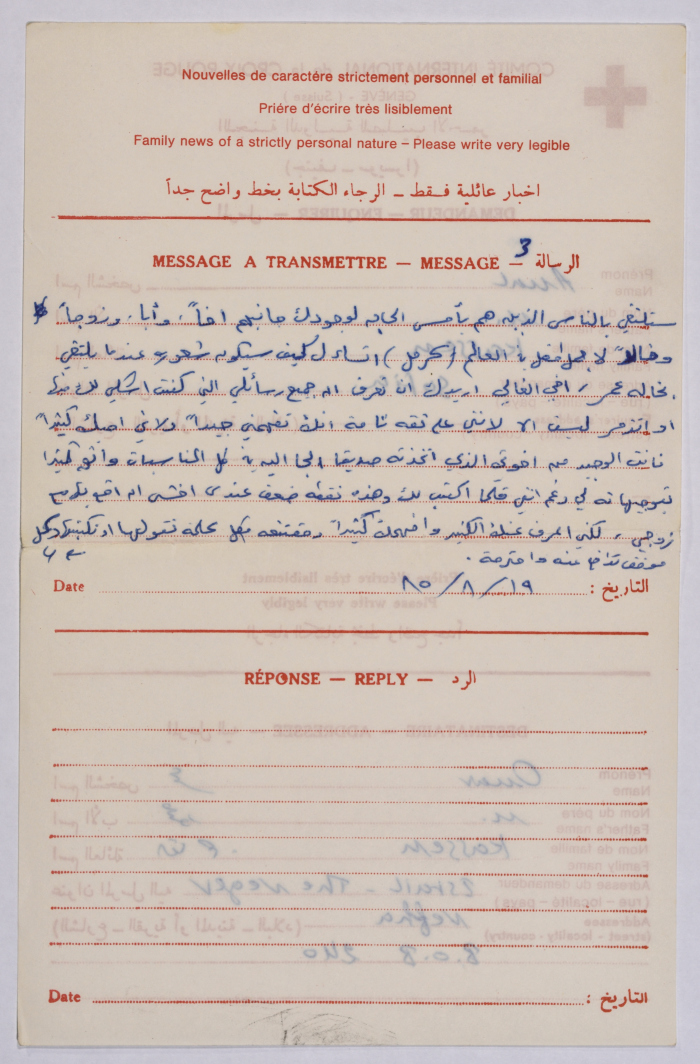 Nouvelles de caractére strictement personnel et familial
Priére d'écrire très lisiblement
Family news of a strictly personal nature – Please write very legible
اخبار عائلية فـقـط ــ الرجاء الكتابة بخط واضح جداً
MESSAGE A TRANSMETTRE — MESSAGE — الرسالة 3
ستلتقي بالناس الذين هم بأمس الحاجة لوجودك جانبهم اخاً، وأباً، وزوجاً،
وخالاً لاجمل طفل بالعالم ( ) اتساءل كيف سيكون شعوره عندما يلتقي
بخاله عمر، اخي الغالي اريدك ان تعرف ان جميع رسائلي التي كنت اشكي لك فيها
او اتذمر ليست الا لانني على ثقة تامة انك تفهمني جيداً ولاني احبك كثيراً
فانت الوحيد من اخوتي الذي اتخذته صديقا لجأ اليه في كل المناسبات واثق كثيرا
بتوجيهاته لي رغم انني قلما اكتب لك وهذه نقطة ضعف عندي اخشى ان اقع
زوجي، لكني اعرف عنك الكثير وافهمك كثيراً ومقتنعه بكل كلمه تقولها او تكتبها وبكل
موقف تدافع عنه واحترمه.
Date ٨٥/٨/١٩ التاريخ :
RÉPONSE — REPLY — الرد
Date التاريخ :